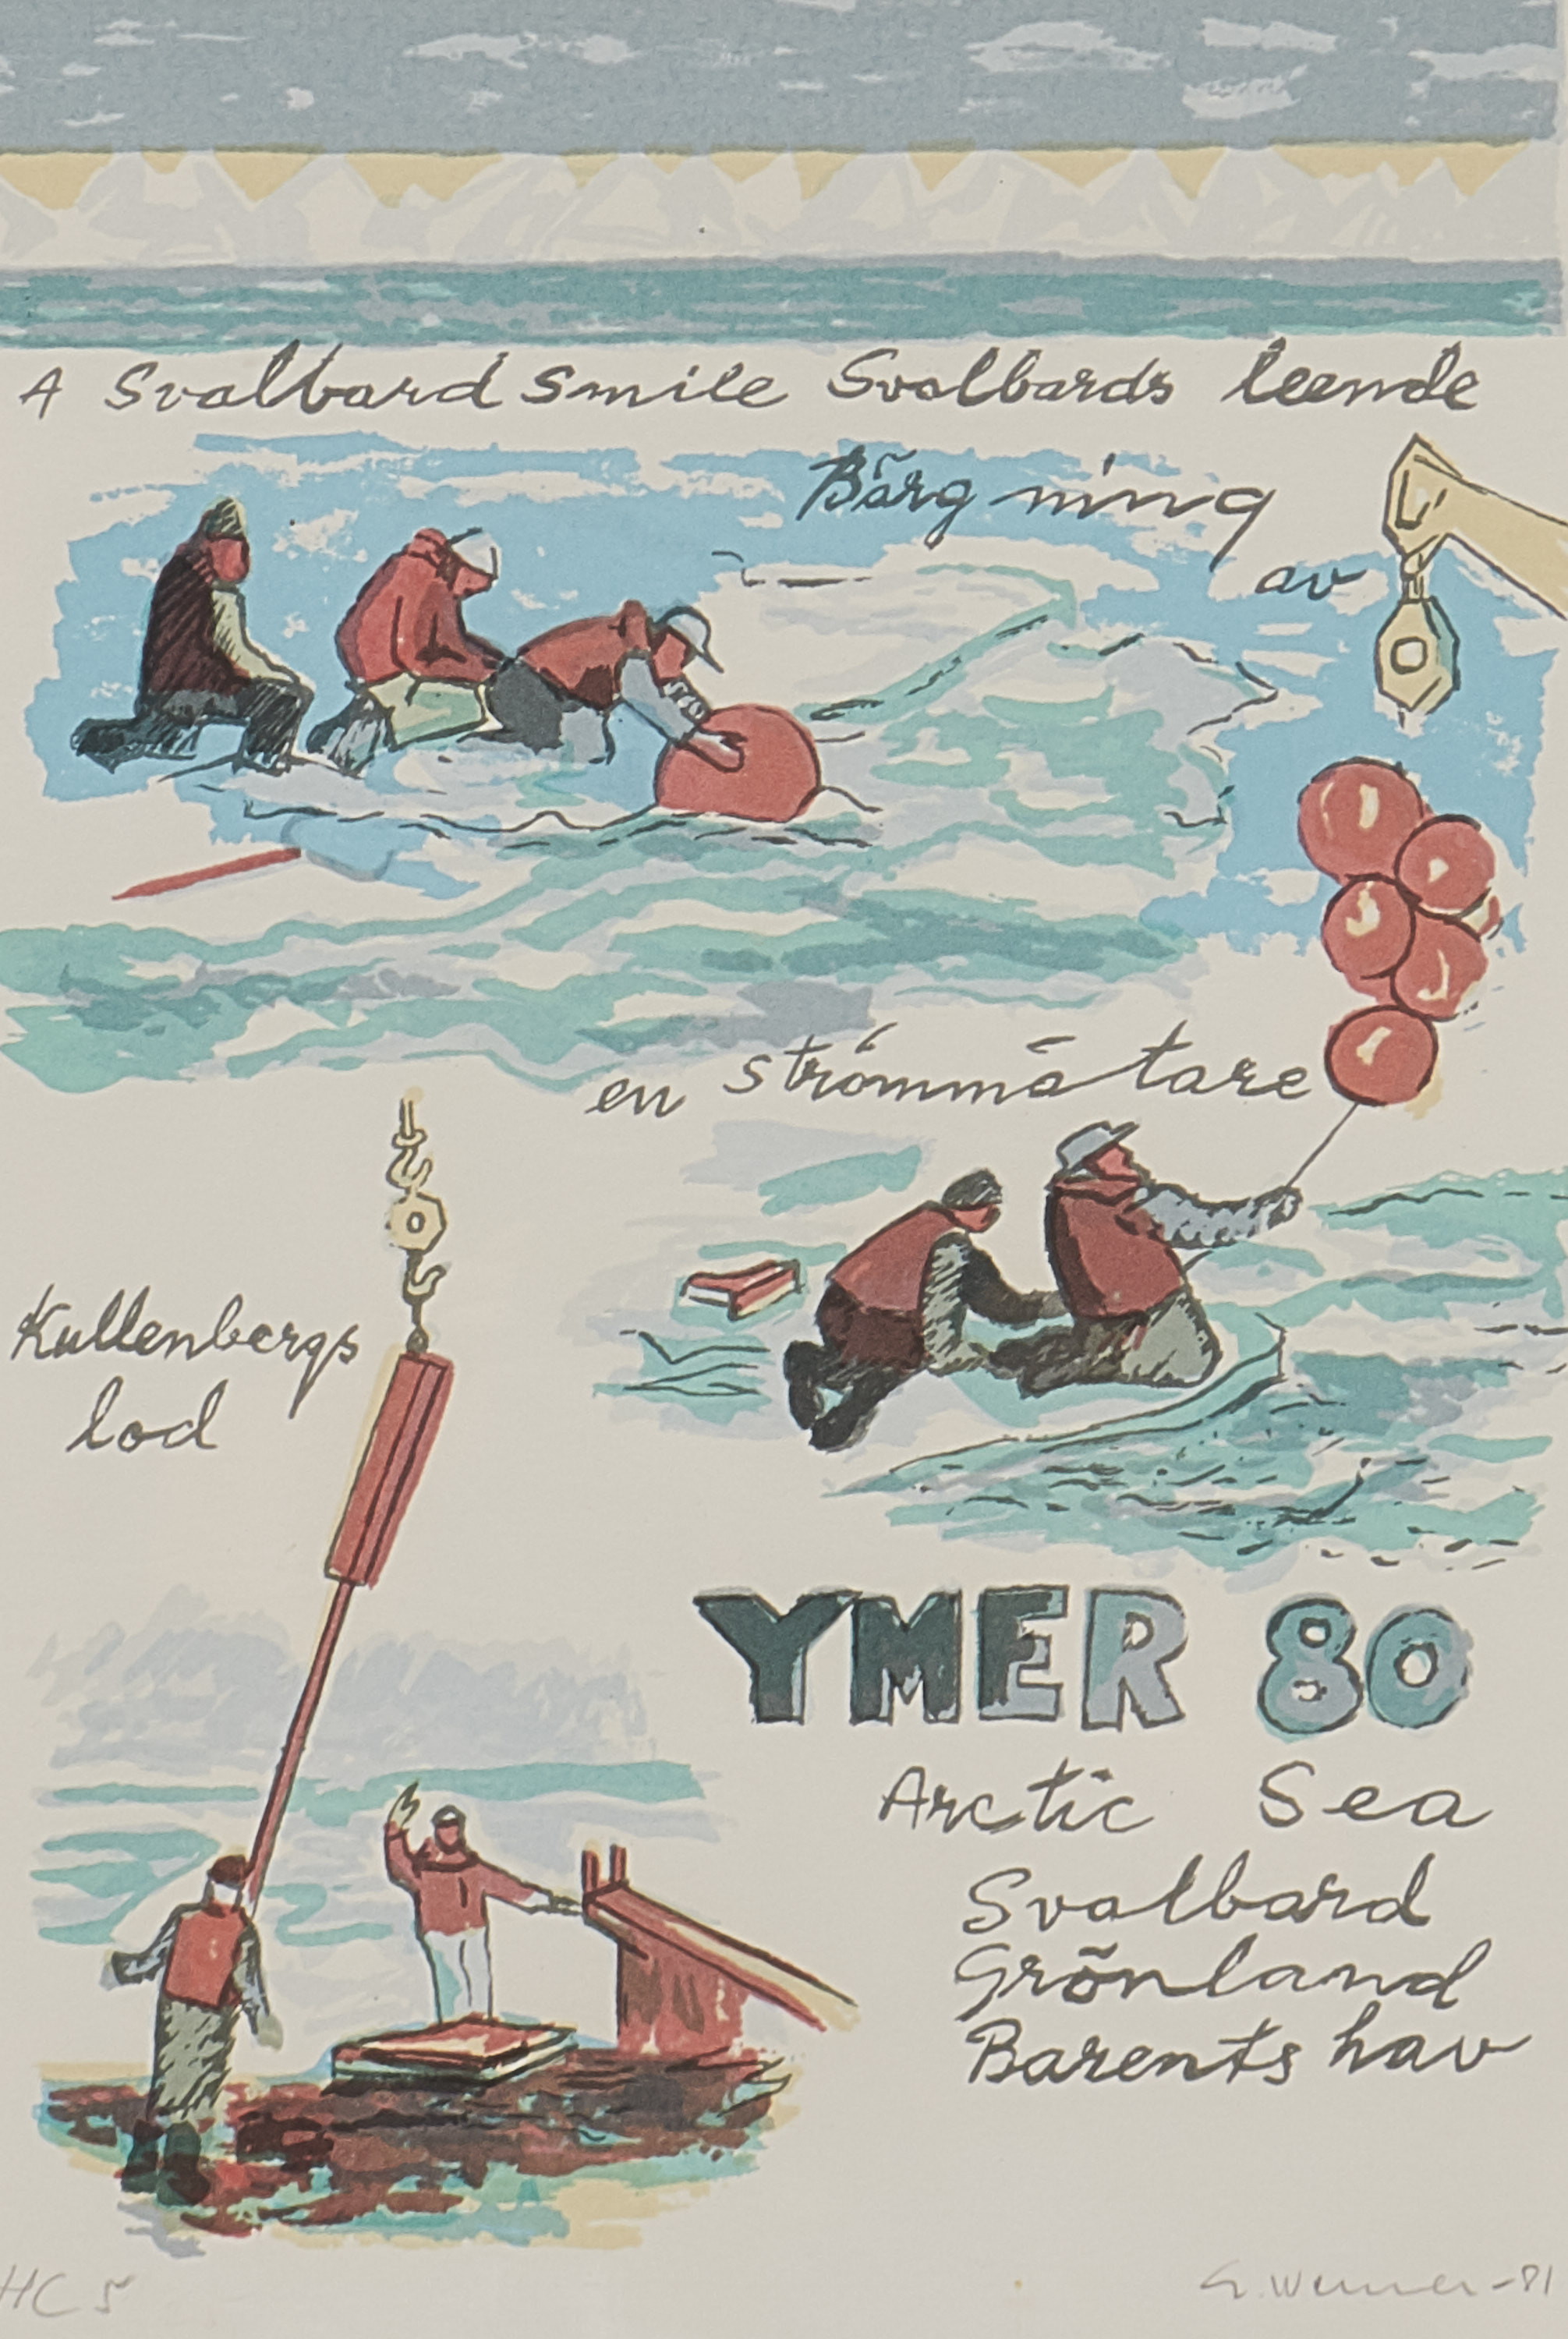 A Svalbard Smile Svalbards leende
Bärgning
av
en strömmätare
Kullenbergs
lod
YMER 80
Arctic Sea
Svalbard
Grönland
Barents hav
HC 5
G. Werner -81